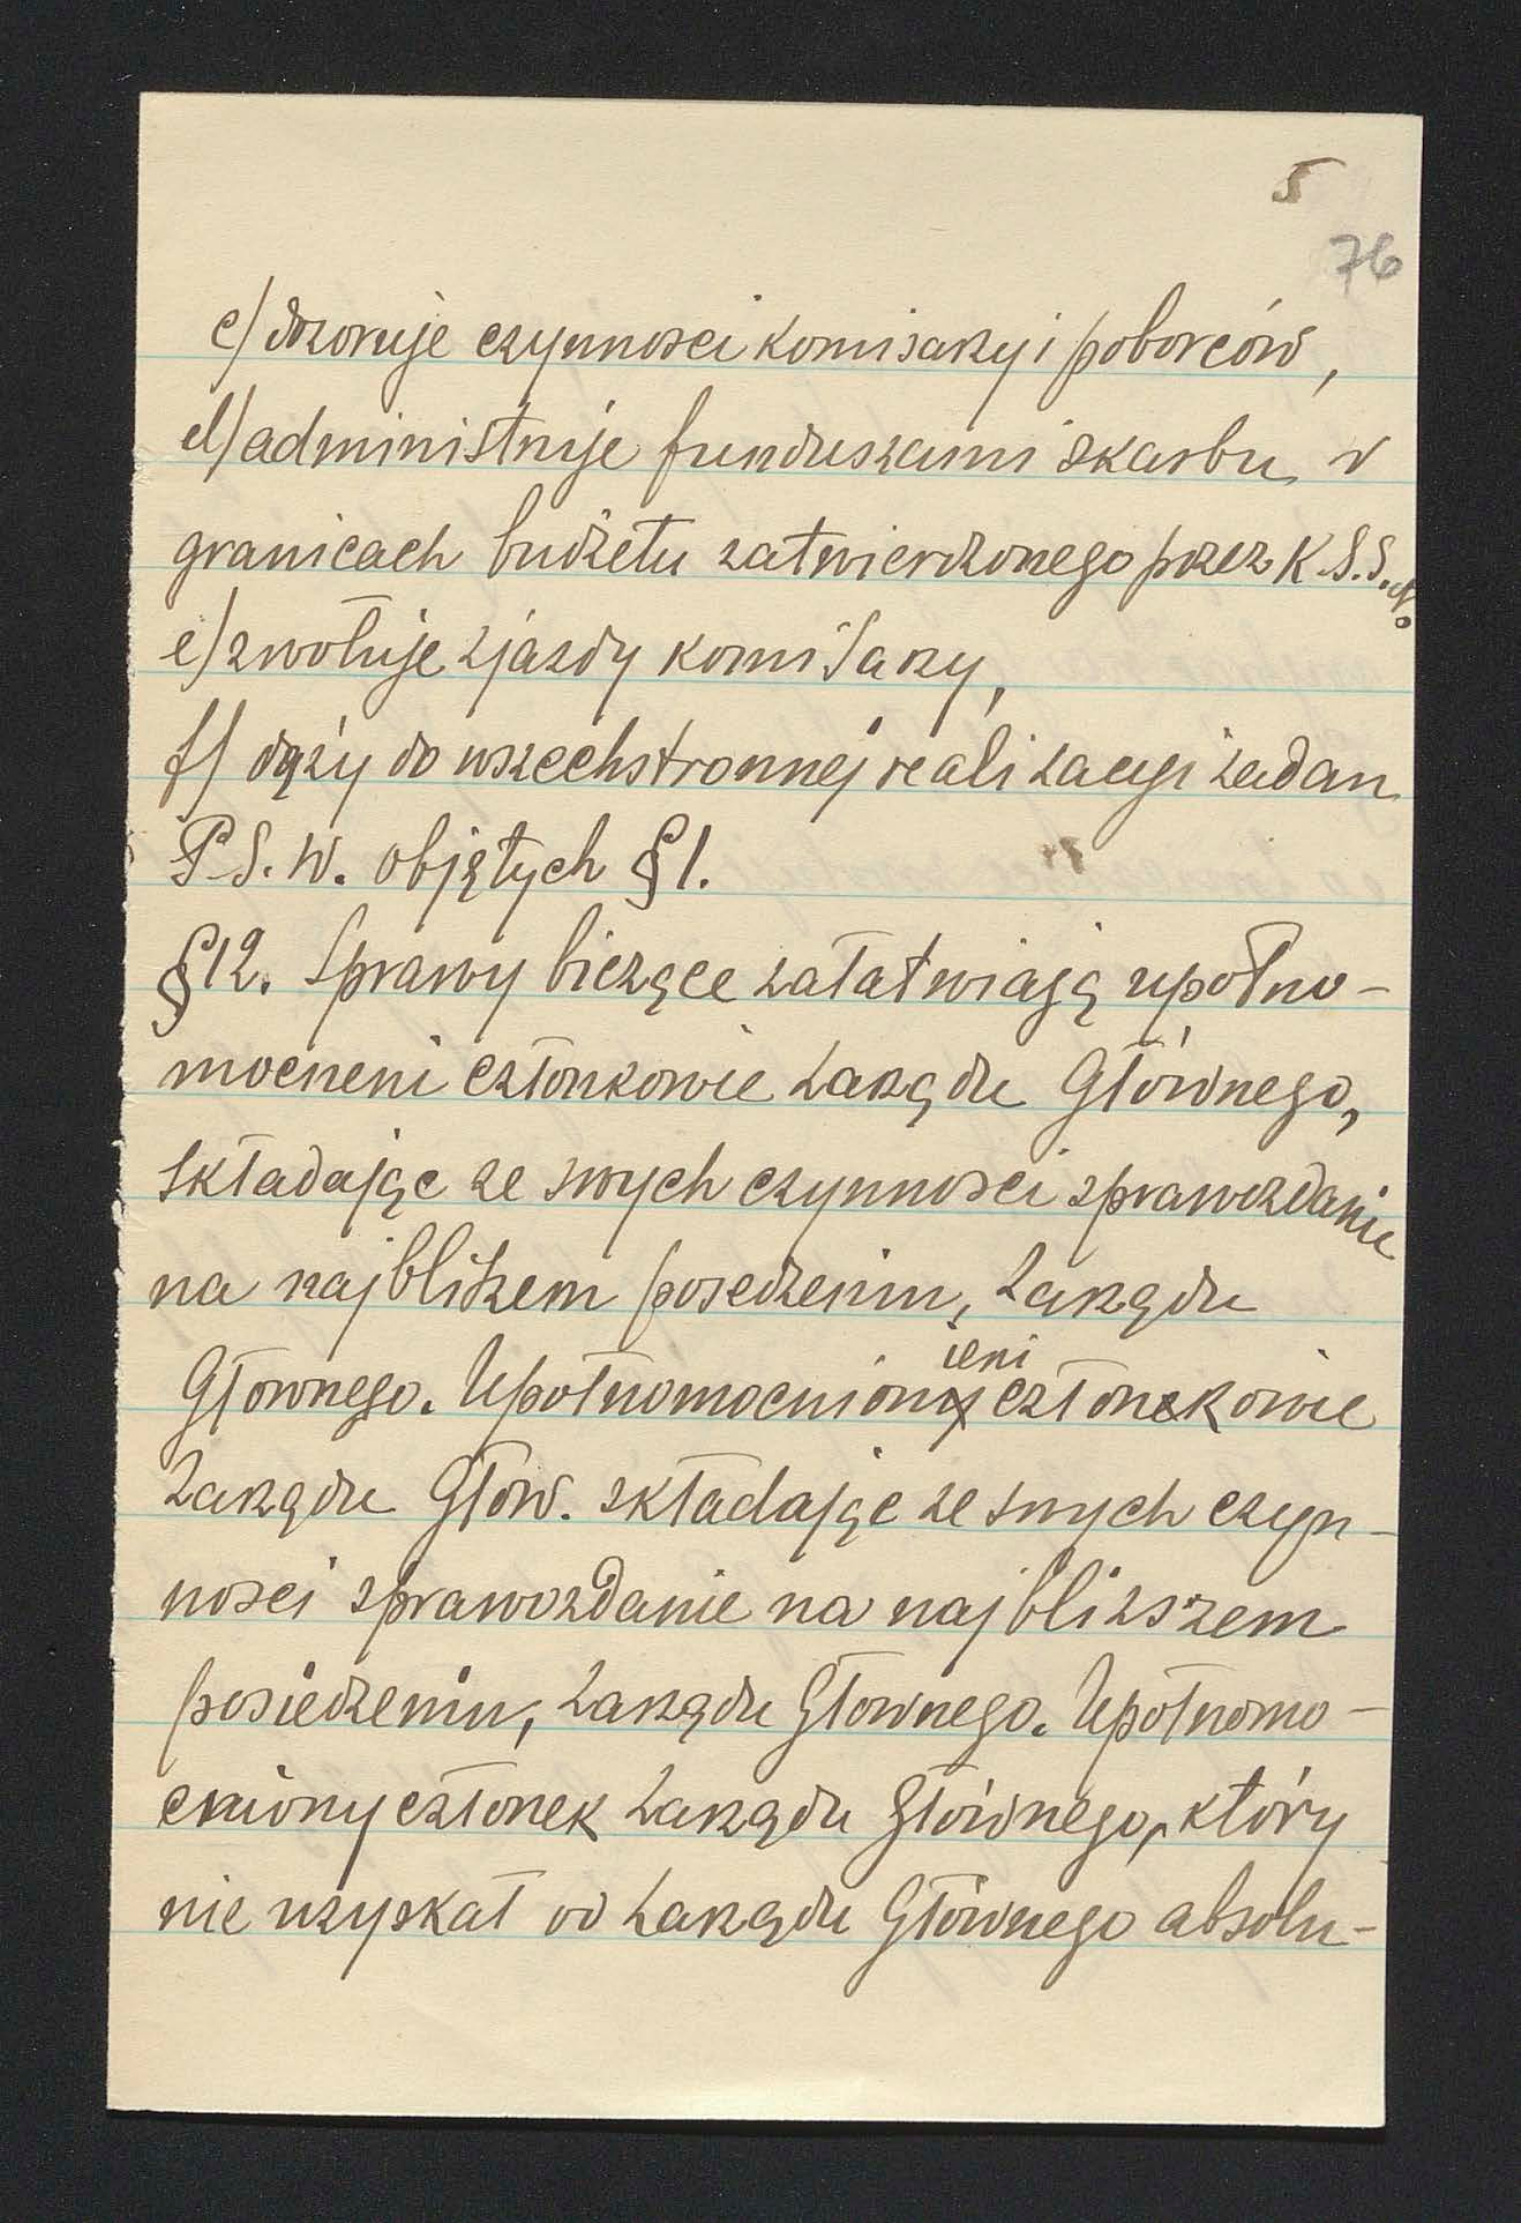 5
76
c) dozoruje czynnosci komisarzy i poborców,
d) administruje funduszami skarbu w
granicach budżetu zatwierdzonego przez K.S.S.N.
e) zwołuje zjazdy komisarzy,
f) dąży do wszechstronnej realizacyi zadan
P.S.W. objętych §1.
§12. Sprawy bieżące załatwiają upołno-
mocneni członkowie Zarządu Głównego,
składając ze swych czynnosci sprawozdanie
na najbliższem posedzeniu, Zarządu
Głownego. Upołnomocnieni członkowie
Zarządu Głow. składając ze swych czyn-
nosci sprawozdanie na najbliższem
posiedzeniu, Zarządu Głownego. Upołnomo-
cniony członek Zarządu Głównego, który
nie uzyskał od Zarządu Głównego absolu-